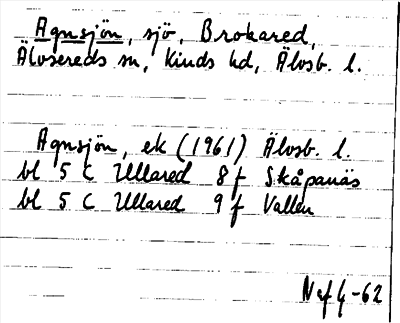 Agnsjön, sjö, Brokared,
Älvsereds sn, Kinds hd, Älvsb. l.
Agnsjön, ek (1961) Älvsb. l.
bl 5 C Ullared 8 f Skåpanäs
bl 5 C Ullared 9 f Vallen